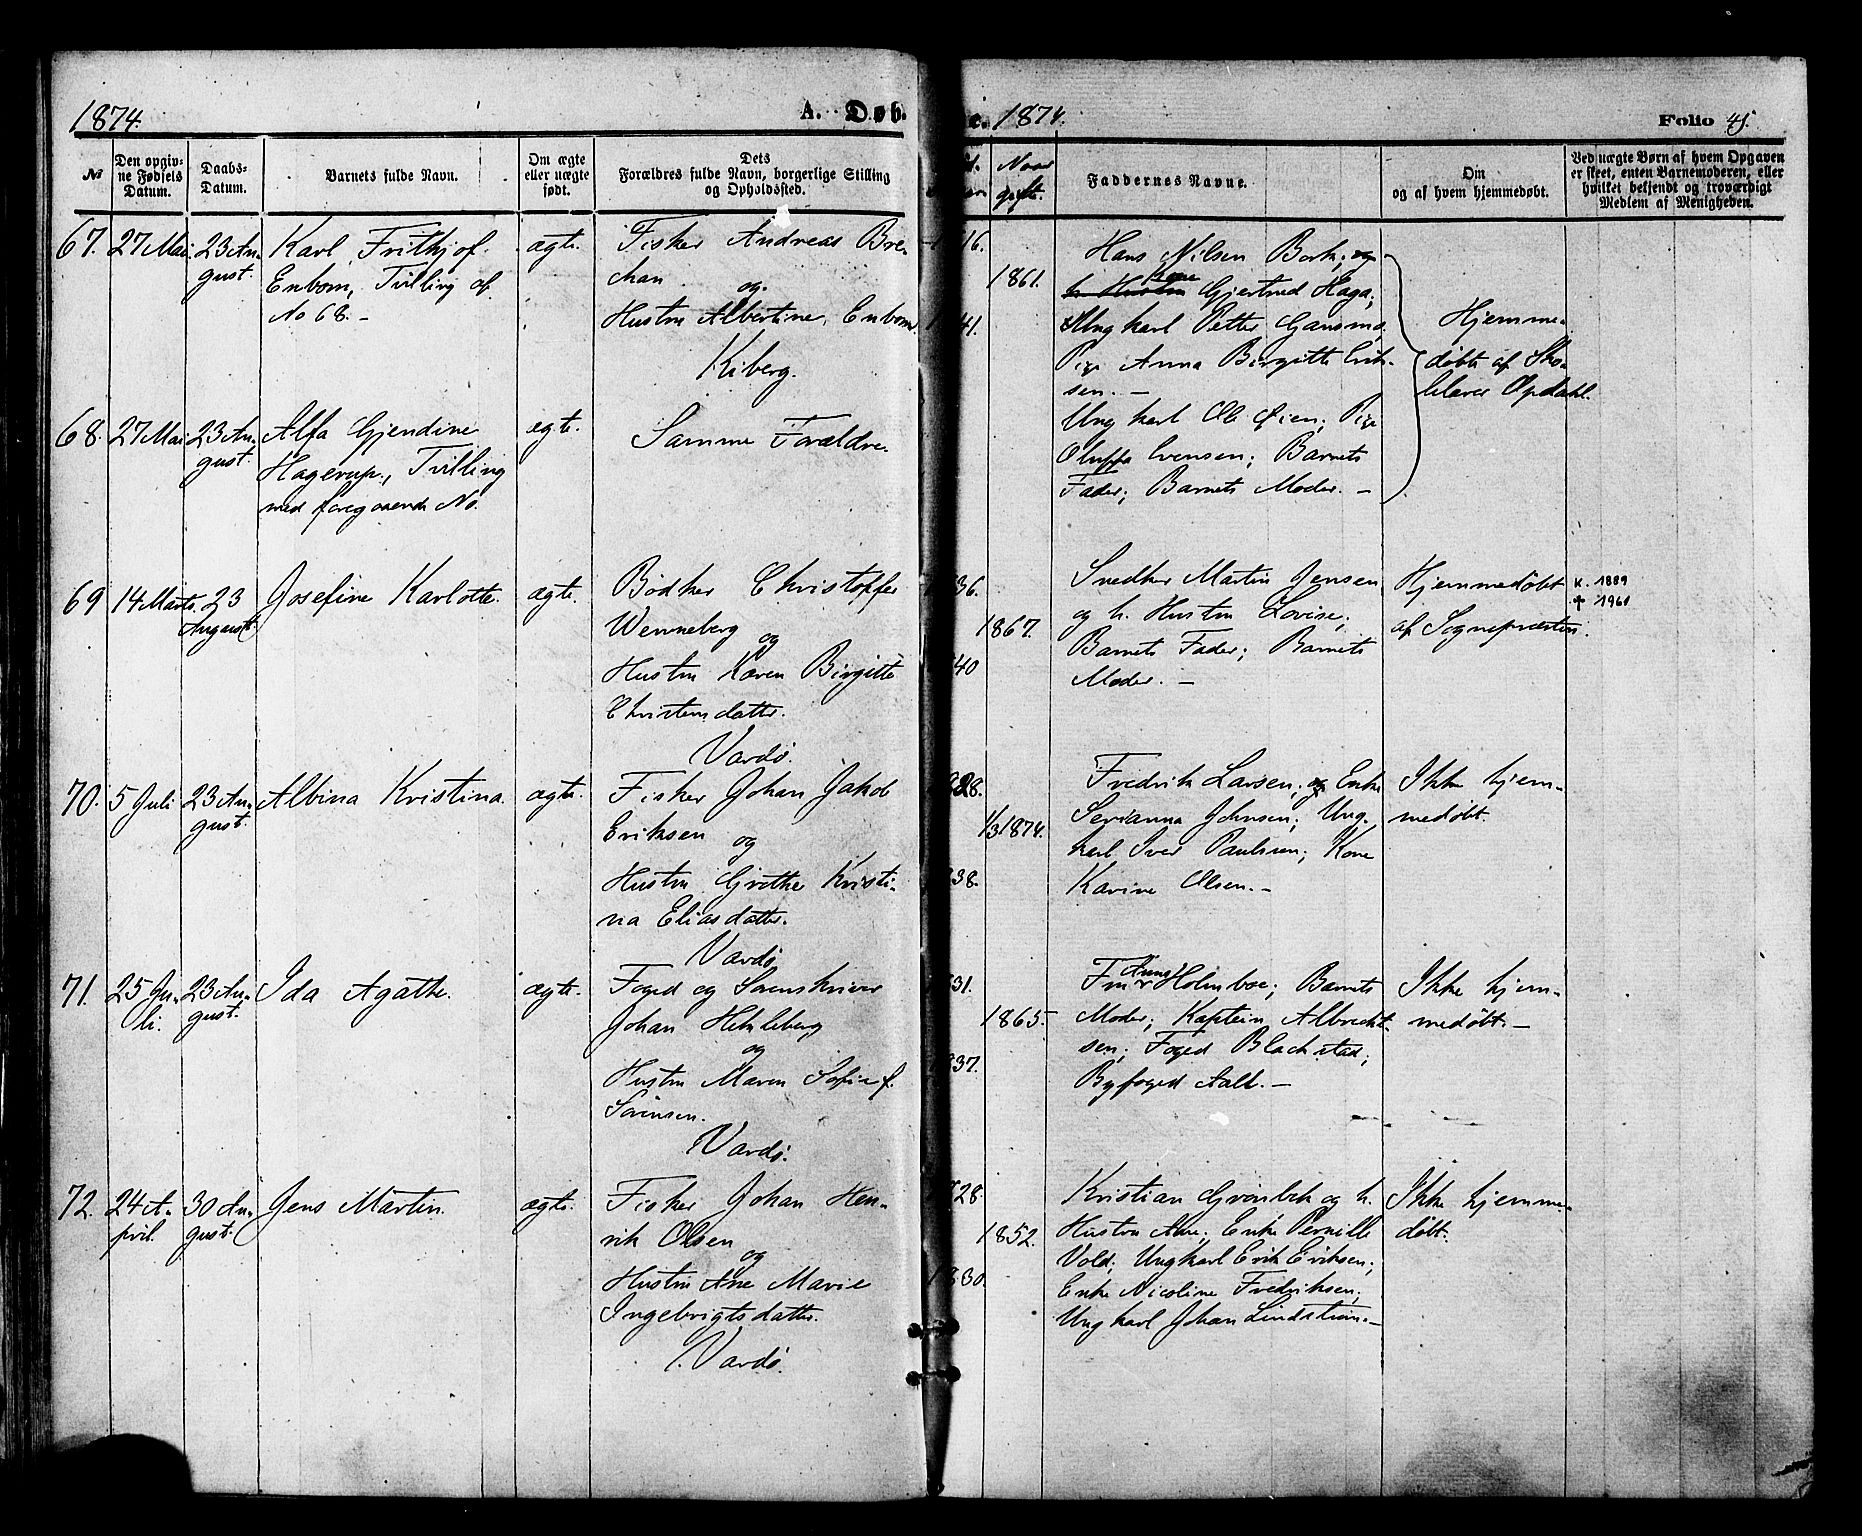 1874.
A. Døb.
№
Den opgiv-
ne Fødsels
Datum.
Daabs-
Datum.
Barnets fulde Navn.
Om ægte
eller uægte
født.
Dets
Forældres fulde Navn, borgerlige Stilling
og Opholdssted.
67. 27 Mai 23 Au-
gust.
Karl Frithjof
Enbom, Tvilling af
No 68. -
ægte.
Fisker Andreas Bre-
chan
og
Hustru Albertine Enbom.
Kiberg.
68. 27 Mai 23 Au-
gust.
Alfa Gjendine
Hagerup, Tvilling
med foregaaende No.
ægte.
Samme Forældre.
69 14 Marts. 23
August.
Josefine Karlotte.
ægte.
Bødker Christoffer
Wenneberg
og
Hustru Karen Birgitte
Christensdatter.
Vardö.
70. 5 Juli 23 Au-
gust.
Albina Kristina.
ægte.
Fisker Johan Jakob
Eriksen
og
Hustru Grethe Kristi-
na Eliasdatter.
Vardö
71. 25 Ju-
li.
23 Au-
gust.
Ida Agathe.
ægte.
Foged og Sorenskriver
Johan
og
Hustru Maren Sofie f.
Sörensen.
Vardö.
72. 24 A-
pril.
30 Au-
gust.
Jens Martin.
ægte.
Fisker Johan Hen-
rik Olsen
og
Hustru Ane Marie
Ingebrigtsdatter.
Vardö.
e. 1874.
Folio 45.
Naar
gifte.
Faddernes Navne.
Om
og af hvem hjemmedøbt.
Ved uægte Børn af hvem Opgaven
er skeet, enten Barnemoderen, eller
hvilket bekjendt og troværdigt
Medlem af Menigheden.
16.
1861.
41.
Hans Nilsen Bork; og
Kone
h. Hustru Gjertrud Haga;
Ungkarl Petter Gansmo;
Pige Anna Birgitte Erik-
sen. -
Ungkarl Ole Øien; Pige
Oluffa Evensen; Barnets
Fader; Barnets Moder. -
Hjemme-
døbte af Sko-
lelærer Opdahl.
36.
1867.
40
Snedker Martin Jensen
og h. Hustru Lovise;
Barnets Fader; Barnets
Moder. -
Hjemmedøbt
af Sognepræsten.
K. 1889
† 1961
28.
1/3 1874.
38.
Fredrik Larsen; og Enke
Serianna Johnsen; Ung-
karl Iver Paulsen; Kone
Karine Olsen. -
Ikke hjem-
medøbt.
31.
1865.
37.
Fru Holmboe; Barnets
Moder; Kaptein Albrecht-
sen; Foged Blackstad;
Byfoged Aall. -
Ikke hjem-
medøbt. -
28.
1852.
1830.
Kristian Grönbek og h.
Hustru Ane; Enke Pernille
Vold; Ungkarl Erik Eriksen;
Enke Nicoline Fredriksen;
Ungkarl Johan Lindström. -
Ikke hjemme-
døbt.